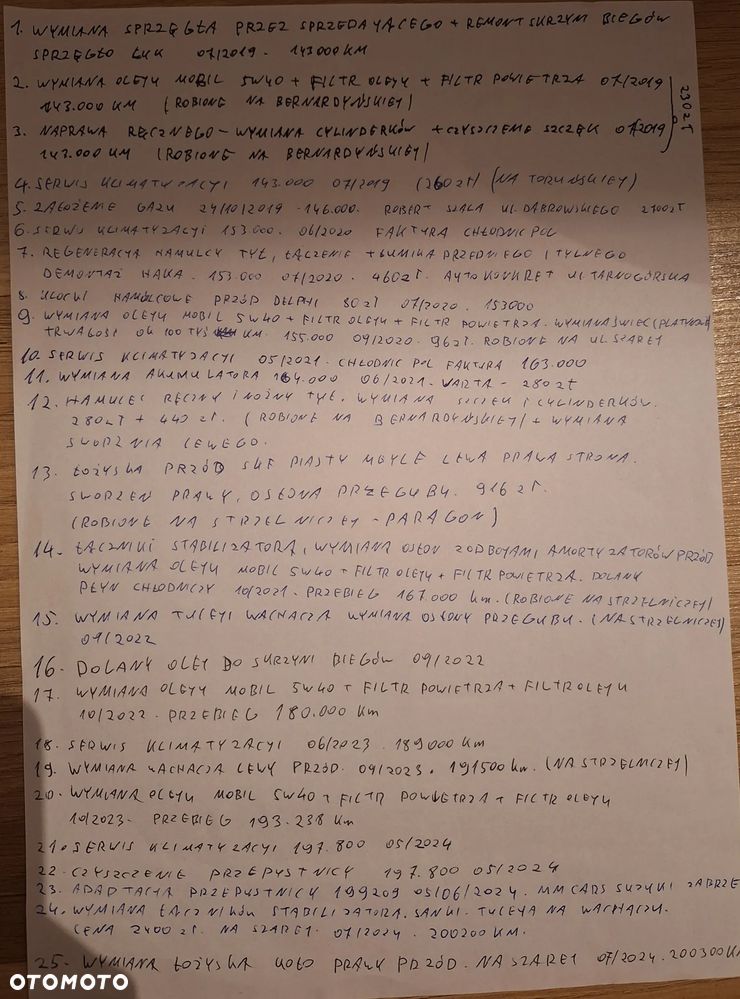 1. WYMIANA SPRZĘGŁA PRZEZ SPRZEDAJĄCEGO + REMONT SKRZYNI BIEGÓW
SPRZĘGŁO LUK 07/2019 - 143000 KM
2. WYMIANA OLEJU MOBIL 5W40 + FILTR OLEJU + FILTR POWIETRZA 07/2019
143.000 KM (ROBIONE NA BERNARDYŃSKIEJ)
230 ZŁ
3. NAPRAWA RĘCZNEGO - WYMIANA CYLINDERKÓW + CZYSZCZENIE SZCZĘK 07/2019
143.000 KM (ROBIONE NA BERNARDYŃSKIEJ)
4. SERWIS KLIMATYZACJI 143.000 07/2019 (260 zł) (NA TORUŃSKIEJ)
5. ZAŁOŻENIE GAZU 24/10/2019 - 146.000. ROBERT SZALA UL. DĄBROWSKIEGO 2700 ZŁ
6. SERWIS KLIMATYZACJI 153.000. 06/2020 FAKTURA CHŁODNIC POL
7. REGENERACJA HAMULCY TYŁ, ŁĄCZENIE TŁUMIKA PRZEDNIEGO I TYLNEGO
DEMONTAŻ HAKA. 153.000 07/2020. 460 ZŁ. AUTO KONKRET UL. TARNOGÓRSKA
8. KLOCKI HAMULCOWE PRZÓD DELPHI 80 ZŁ 07/2020. 153000
9. WYMIANA OLEJU MOBIL 5W40 + FILTR OLEJU + FILTR POWIETRZA. WYMIANA ŚWIEC (PLATYNOWE)
TRWAŁOŚĆ OK 100 TYŚ KM. 155.000 09/2020. 96 ZŁ. ROBIONE NA UL. SZAREJ
10. SERWIS KLIMATYZACJI 05/2021. CHŁODNIC POL FAKTURA 163.000
11. WYMIANA AKUMULATORA 164.000 06/2021. VARTA - 280 zł
12. HAMULEC RĘCZNY I NOŻNY TYŁ. WYMIANA SZCZĘK I CYLINDERKÓW.
280 ZŁ + 440 ZŁ. (ROBIONE NA BERNARDYŃSKIEJ) + WYMIANA
SWORZNIA LEWEGO.
13. ŁOŻYSKA PRZÓD SKF PIASTY MEYLE LEWA PRAWA STRONA.
SWORZEŃ PRAWY, OSŁONA PRZEGUBU. 916 ZŁ.
(ROBIONE NA STRZELNICZEJ - PARAGON)
14. ŁĄCZNIKI STABILIZATORA, WYMIANA OSŁON Z ODBOJAMI AMORTYZATORÓW PRZÓD
WYMIANA OLEJU MOBIL 5W40 + FILTR OLEJU + FILTR POWIETRZA. DOLANY
PŁYN CHŁODNICZY 10/2021. PRZEBIEG 167.000 km. (ROBIONE NA STRZELNICZEJ)
15. WYMIANA TULEJI WACHACZA WYMIANA OSŁONY PRZEGUBU. (NA STRZELNICZEJ)
01/2022
16. DOLANY OLEJ DO SKRZYNI BIEGÓW 09/2022
17. WYMIANA OLEJU MOBIL 5W40 + FILTR POWIETRZA + FILTR OLEJU
10/2022. PRZEBIEG 180.000 Km
18. SERWIS KLIMATYZACJI 06/2023. 189000 Km
19. WYMIANA WACHACZA LEWY PRZÓD. 09/2023. 191500 km. (NA STRZELNICZEJ)
20. WYMIANA OLEJU MOBIL 5W40 + FILTR POWIETRZA + FILTR OLEJU
10/2023. PRZEBIEG 193.238 Km
21. SERWIS KLIMATYZACJI 197.800 05/2024
22. CZYSZCZENIE PRZEPUSTNICY 197.800 05/2024
23. ADAPTACJA PRZEPUSTNICY 199209 05/06/2024. MM CARS SUZUKI ZABRZE
24. WYMIANA ŁĄCZNIKÓW STABILIZATORA. SANKI. TULEJA NA WACHACZU.
CENA 2400 ZŁ. NA SZAREJ. 07/2024. 200200 KM.
25. WYMIANA ŁOŻYSKA KOŁO PRAWY PRZÓD. NA SZAREJ 07/2024. 200300 KM
OTOMOTO